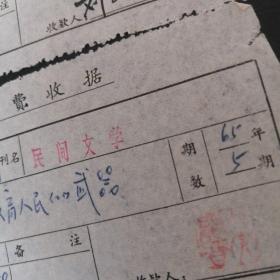 注
收款人
费收据
刊名 民间文学 期数 65年5期
教育人民的武器
备注
收款人：